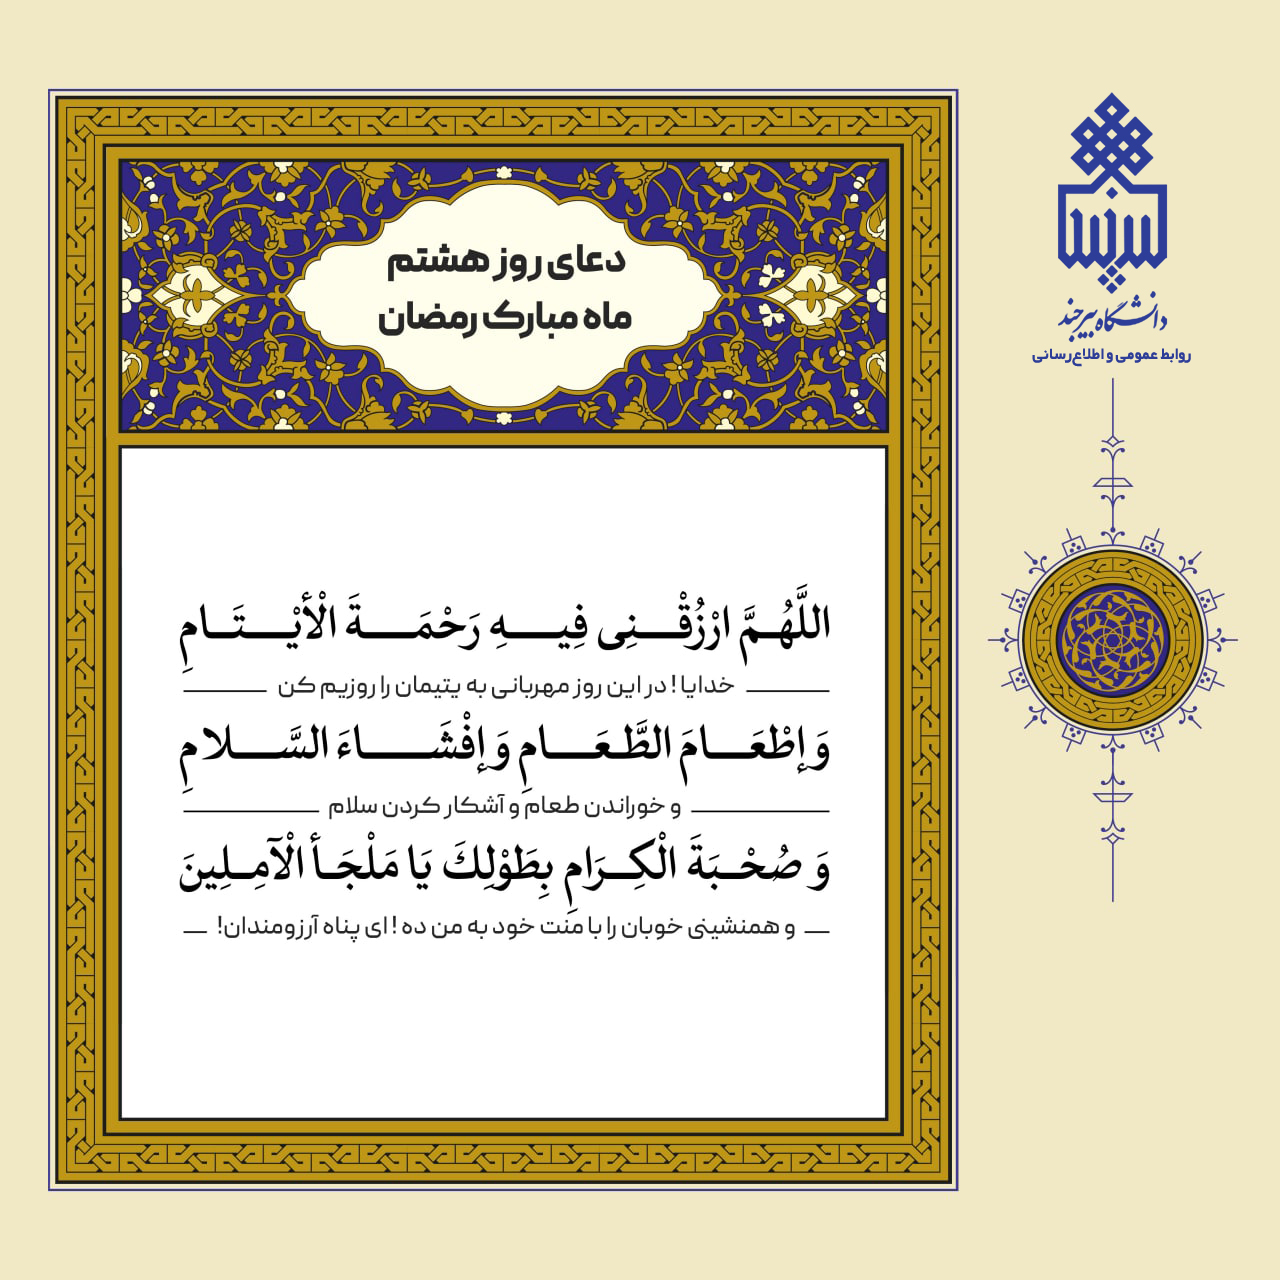 دعای روز هشتم
ماه مبارک رمضان
اللَّهُمَّ ارْزُقْنِی فِیهِ رَحْمَةَ الْأَیْتَامِ
خدایا! در این روز مهربانی به یتیمان را روزیم کن
وَ إِطْعَامَ الطَّعَامِ وَ إِفْشَاءَ السَّلامِ
و خوراندن طعام و آشکار کردن سلام
وَ صُحْبَةَ الْکِرَامِ بِطَوْلِكَ یَا مَلْجَأَ الْآمِلِینَ
و همنشینی خوبان را با منت خود به من ده! ای پناه آرزومندان!
بیرجند
دانشگاه بیرجند
روابط عمومی و اطلاع‌رسانی